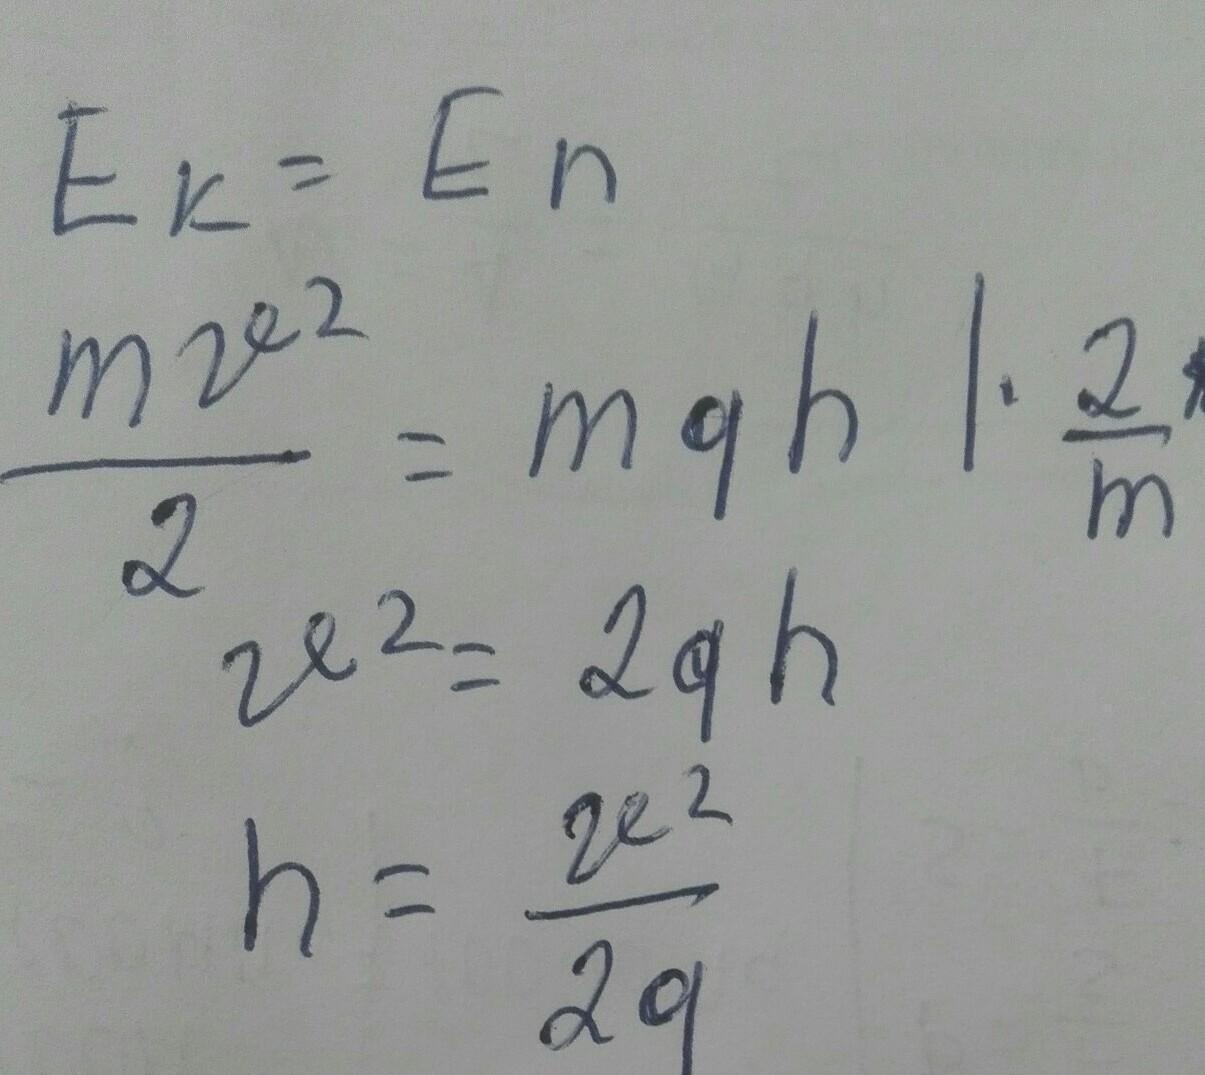 Eк = Eп
mv²/2 = mgh | · 2/m
v² = 2gh
h = v²/2g